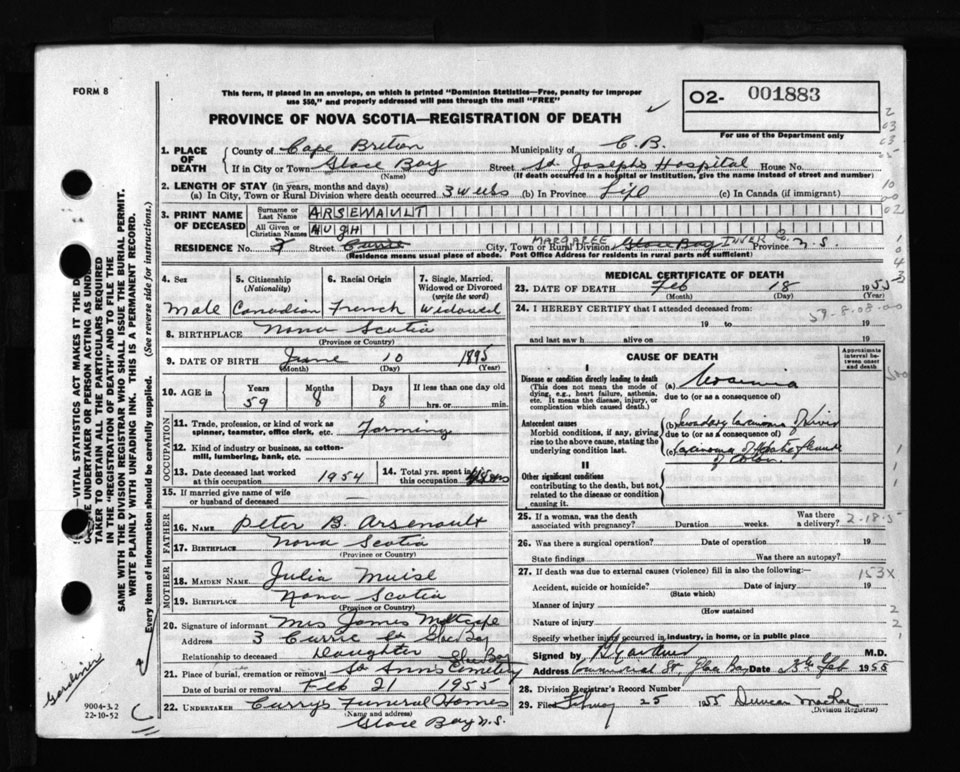 FORM 8
This form, if placed in an envelope, on which is printed "Dominion Statistics—Free, penalty for improper
use $50," and properly addressed will pass through the mail "FREE"
O2- 001883
For use of the Department only
PROVINCE OF NOVA SCOTIA—REGISTRATION OF DEATH
1. PLACE OF DEATH County of Cape Breton Municipality of C.B.
If in City or Town Glace Bay Street St Josephs Hospital House No.
(Name) (If death occurred in a hospital or institution, give the name instead of street and number)
2. LENGTH OF STAY (in years, months and days)
(a) In City, Town or Rural Division where death occurred 3 weeks (b) In Province Life (c) In Canada (if immigrant)
3. PRINT NAME OF DECEASED Surname or Last Name ARSENAULT
All Given or Christian Names HUGH
RESIDENCE No. 3 Street Currie City, Town or Rural Division MARGAREE Glace Bay INVER Co. Province N.S.
(Residence means usual place of abode. Post Office Address for residents in rural parts not sufficient)
4. Sex Male
5. Citizenship (Nationality) Canadian
6. Racial Origin French
7. Single, Married, Widowed or Divorced (write the word) Widowed
8. BIRTHPLACE Nova Scotia
(Province or Country)
9. DATE OF BIRTH June 10 1895
(Month) (Day) (Year)
10. AGE in Years 59 Months 8 Days 8 If less than one day old hrs. or min.
OCCUPATION
11. Trade, profession, or kind of work as spinner, teamster, office clerk, etc. Farming
12. Kind of industry or business, as cotton-mill, lumbering, bank, etc.
13. Date deceased last worked at this occupation 1954
14. Total yrs. spent in this occupation
15. If married give name of wife or husband of deceased —
FATHER
16. NAME Peter B. Arsenault
17. BIRTHPLACE Nova Scotia
(Province or Country)
MOTHER
18. MAIDEN NAME Julia Muise
19. BIRTHPLACE Nova Scotia
(Province or Country)
20. Signature of informant Mrs James
Address 3 Currie St Glace Bay
Relationship to deceased Daughter
21. Place of burial, cremation or removal St Anns Cemetery Glace Bay
Date of burial or removal Feb 21 1955
22. UNDERTAKER Currys Funeral Homes
(Name and address)
Glace Bay N.S.
MEDICAL CERTIFICATE OF DEATH
23. DATE OF DEATH Feb 18 1955
(Month) (Day) (Year)
24. I HEREBY CERTIFY that I attended deceased from:
19 to 19
and last saw h alive on 19
CAUSE OF DEATH
Approximate interval between onset and death
I
Disease or condition directly leading to death
(This does not mean the mode of dying, e.g., heart failure, asthenia, etc. It means the disease, injury, or complication which caused death.)
(a) Uraemia
due to (or as a consequence of)
Antecedent causes
Morbid conditions, if any, giving rise to the above cause, stating the underlying condition last.
(b) Secondary Carcinoma of Liver
due to (or as a consequence of)
(c) Carcinoma of Hepatic Flexure of Colon.
II
Other significant conditions
contributing to the death, but not related to the disease or condition causing it.
25. If a woman, was the death associated with pregnancy? Duration weeks. Was there a delivery?
26. Was there a surgical operation? Date of operation 19
State findings Was there an autopsy?
27. If death was due to external causes (violence) fill in also the following:
153X
Accident, suicide or homicide? Date of injury 19
(State which)
Manner of injury
(How sustained
Nature of injury
Specify whether injury occurred in industry, in home, or in public place
Signed by M.D.
Address Commercial St, Glace Bay Date Feb 1955
28. Division Registrar's Record Number
29. Filed February 25 1955 Duncan MacRae
(Division Registrar)
VITAL STATISTICS ACT MAKES IT THE
UNDERTAKER OR PERSON ACTING AS UNDER-
TAKER TO OBTAIN ALL THE PARTICULARS REQUIRED
IN THE "REGISTRATION OF DEATH" AND TO FILE THE
SAME WITH THE DIVISION REGISTRAR WHO SHALL ISSUE THE BURIAL PERMIT.
WRITE PLAINLY WITH UNFADING INK. THIS IS A PERMANENT RECORD.
Every item of information should be carefully supplied. (See reverse side for instructions.)
Gardiner
9004-3.2
22-10-52